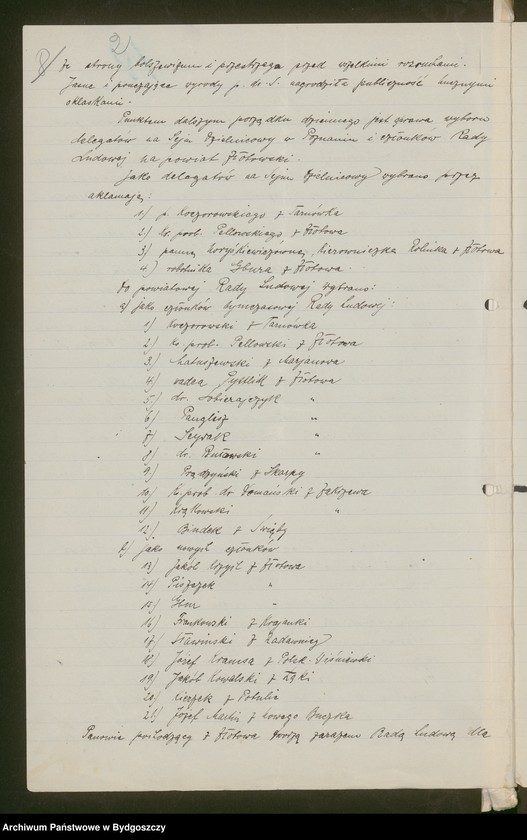 8/ 2)
ze strony bolszewizmu i przestrzega przed wszelkimi rozruchami.
Jasne i pouczające wywody p. dr. S. nagrodziła publiczność hucznymi
oklaskami.
Punktem dalszym porządku dziennego jest sprawa wyboru
delegatów na Sejm Dzielnicowy w Poznaniu i członków Rady
Ludowej na powiat Złotowski.
Jako delegatów na Sejm Dzielnicowy wybrano przez
aklamację:
1) p. Koczorowskiego z Tarnówka
2) ks. prob. Pellowskiego z Złotowa
3) pannę kierowniczka Rolnika z Złotowa
4) robotnika z Złotowa.
Do powiatowej Rady Ludowej wybrano:
a) jako członków tymczasowej Rady Ludowej:
1) Koczorowski z Tarnówka
2) ks. prob. Pellowski z Złotowa
3) z Marjanowa
4) radca z Złotowa
5) dr. Sobierajczyk "
6) "
7) "
8) dr. "
9) Prądzyński z Skarpy
10) ks. prob. dr. Domański z Zakrzewa
11) "
12) z Święty
b) jako nowych członków
13) Jakób z Złotowa
14) "
15) "
16) z Krajenki
17) z Radawnicy
18) Józef z Polsk. Wiśniewki
19) Jakób Kowalski z
20) z Potulic
21) Józef z Nowego Buczka
Panowie pochodzący z Złotowa tworzą zarazem Radę Ludową dla
Archiwum Państwowe w Bydgoszczy